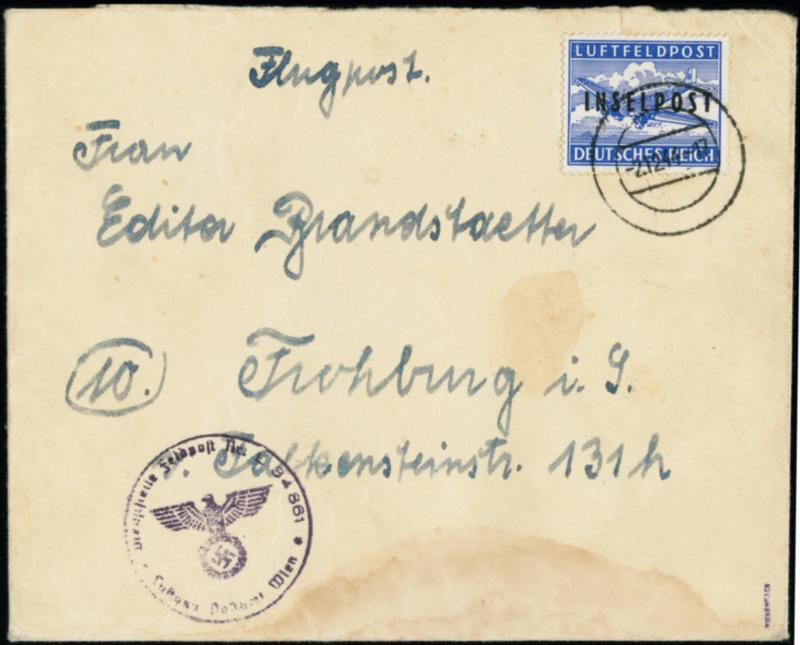 Flugpost.
LUFTFELDPOST
INSELPOST
DEUTSCHES REICH
-2.12.44.-12
Frau
Edita Brandstaetter
10.
Frohburg i. S.
Falkensteinstr. 131h
Feldpost Nr. L 94861
Luftgau Postamt Wien